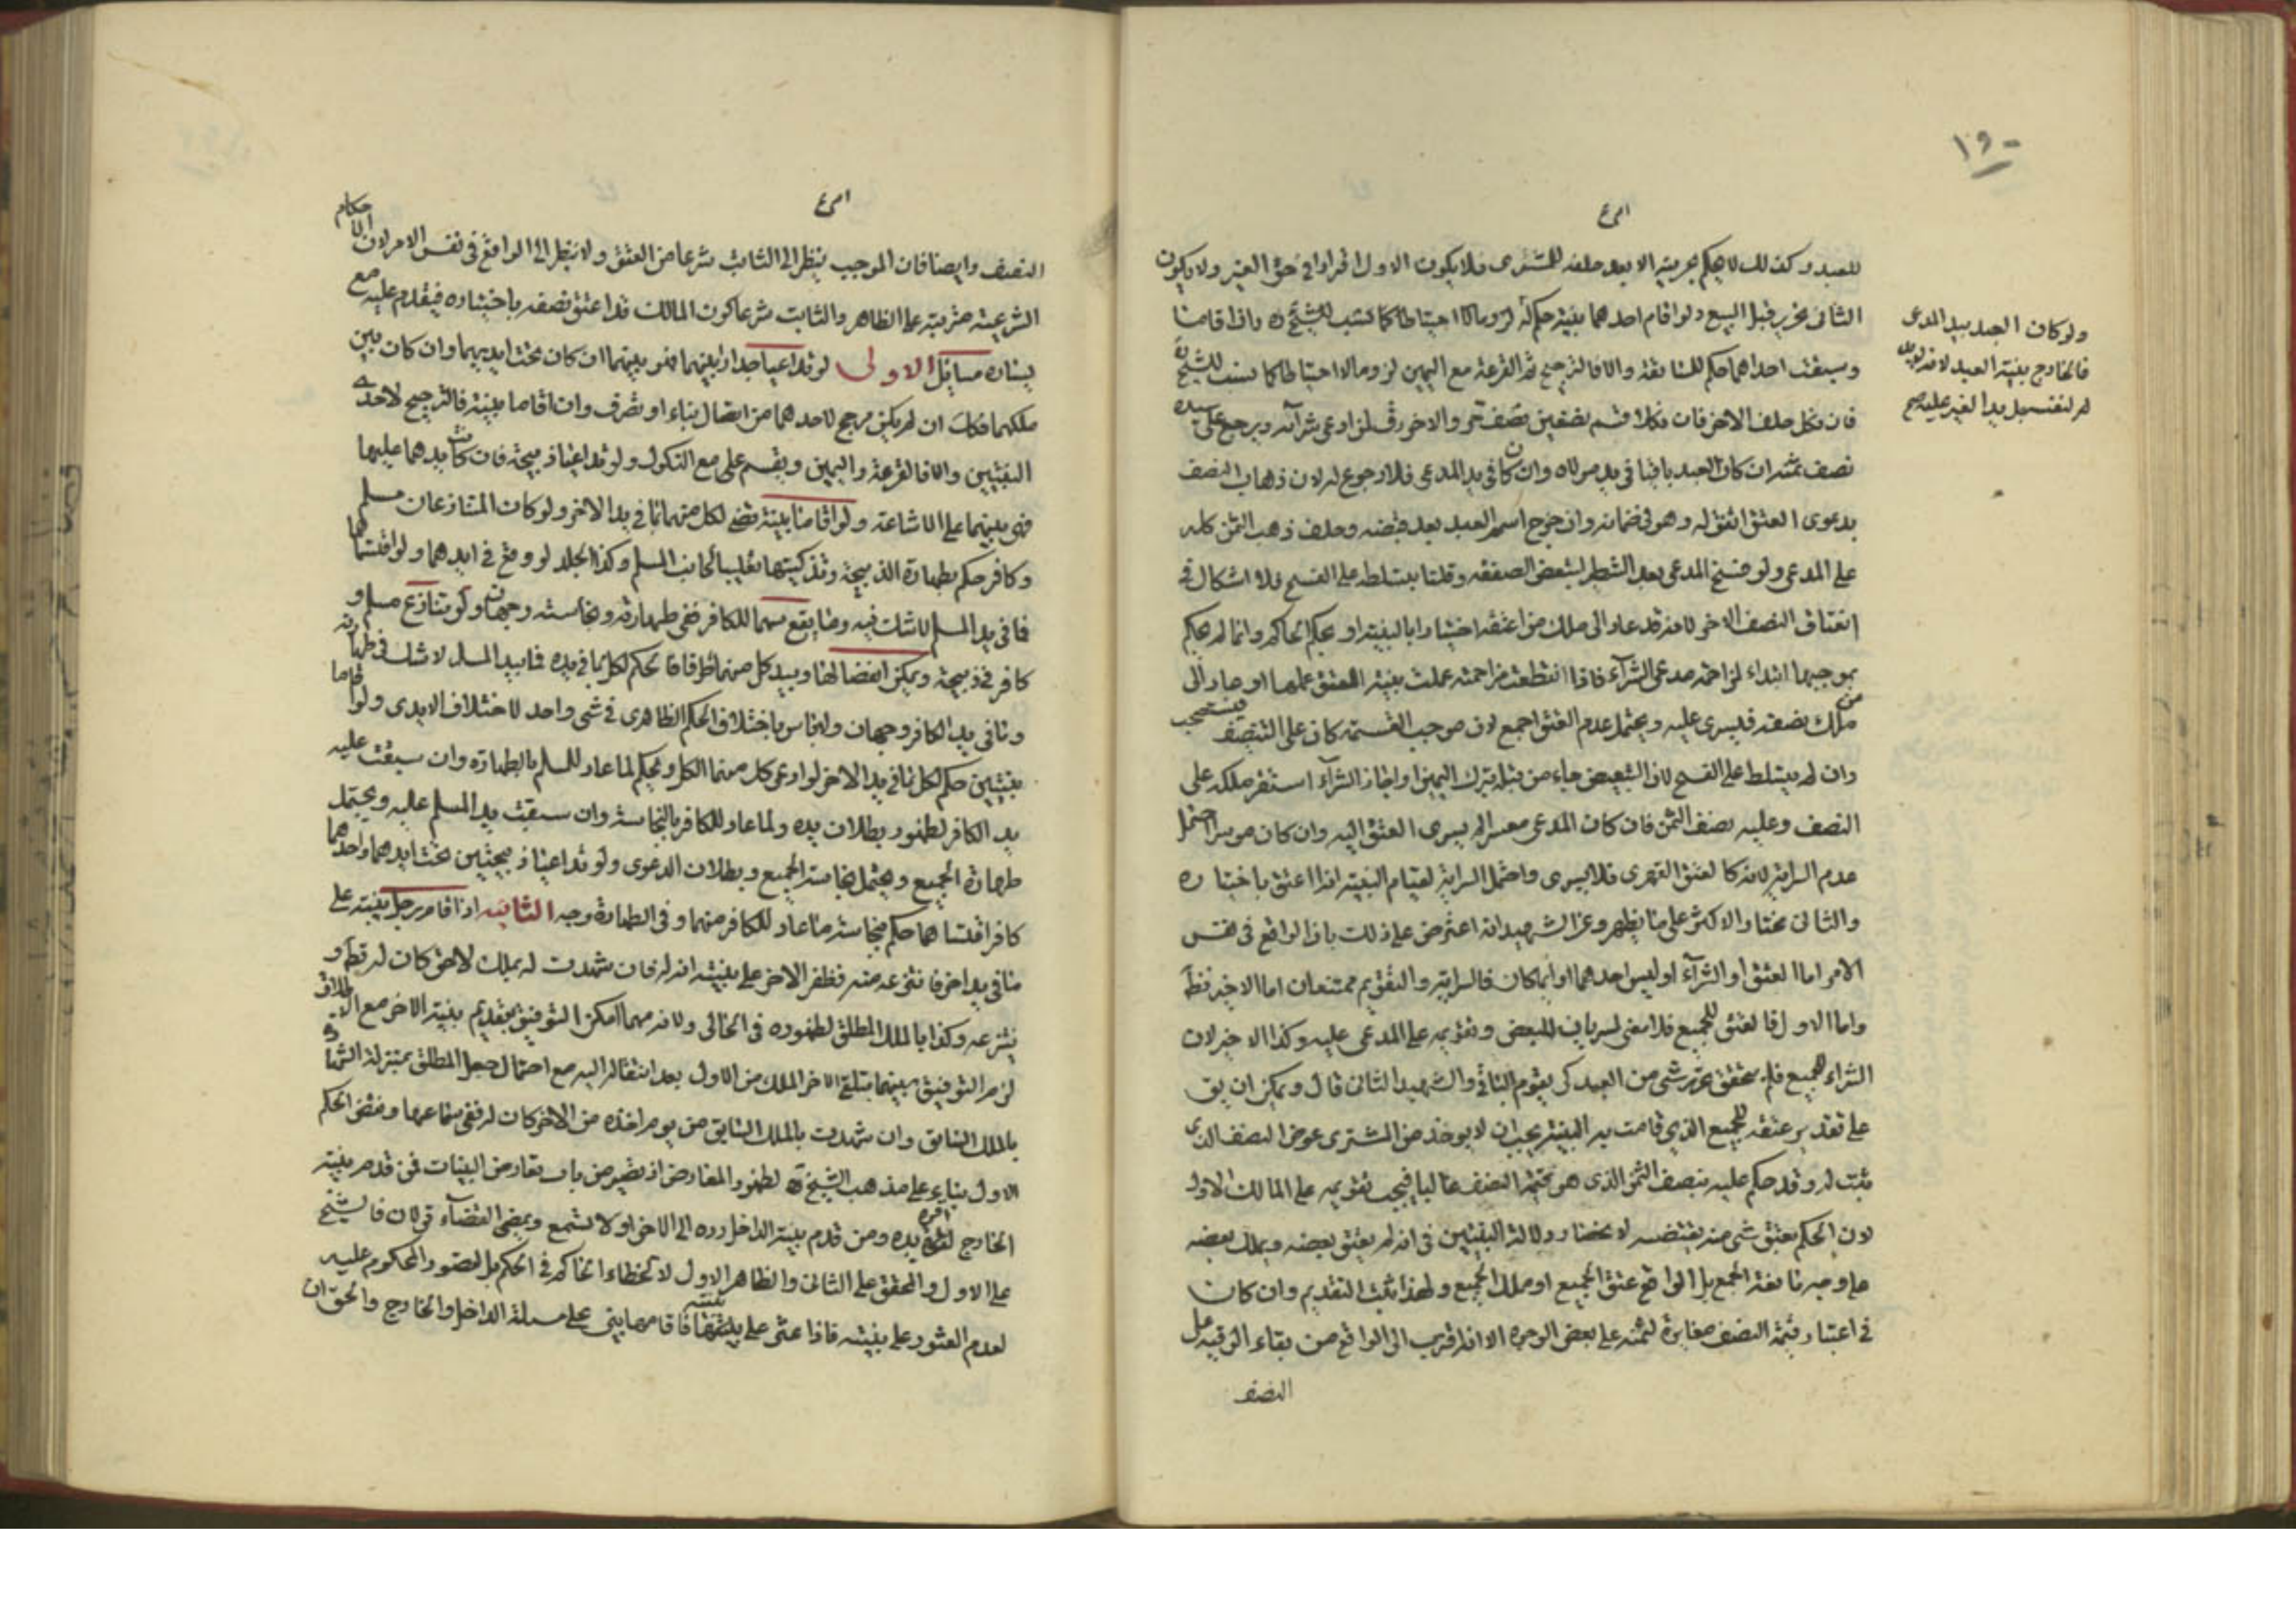 ١٩٠
للعبد وكذلك لا يحكم بحريته الا بعد حلفه للمشترى فلا يكون الاول اقرارا في حق الغير ولا يكون
الثانى تحرير قبل البيع ولو اقام احدهما بينة حكم له لزوما لا احتياطا كما نسب للشيخ ره واذا اقامتا
وسبقت احداهما حكم للسابقة والا فالترجيح ثم القرعة مع اليمين لزوما لا احتياطا كما نسب للشيخ
فان نكل حلف الاخر فان نكلا قسم نصفين نصف حر والاخر رق لمن ادعى شرآئه ويرجع على سيده
نصف ثمنه ان كان العبد باقيا في يد مولاه وان كان في يد المدعى فلا رجوع له لان ذهاب النصف
بدعوى العتق اتفق له وهو في ضمانه وان خرج اسم العبد بعد قبضه وحلف ذهب الثمن كله
على المدعى ولو فسخ المدعى بعد التشطير لتبعض الصفقة وقلنا بتسلطه على الفسخ فلا اشكال في
انعتاق النصف الاخر لانه قد عاد الى ملك من اعتقه اختيارا بالبينة او بحكم الحاكم وانما لم يحكم
بموجبها ابتداء لمزاحمة مدعى الشرآء فاذا انقطعت مزاحمته عملت بينة العتق عملها او صار الى
ملك من نصفه فيسرى عليه ويحتمل عدم العتق اجمع لان موجب القسمة كان على التنصيف فيستصحب
وان لم يتسلط على الفسخ لان التبعيض جاء من قبله بترك اليمين او اجاز الشرآء استقر ملكه على
النصف وعليه نصف الثمن فان كان المدعى معسرا لم يسرى العتق اليه وان كان موسرا احتمل
عدم السراية لانه كالعتق القهرى فلا يسرى واحتمل السراية لقيام البينة انه اعتق باختياره
والثانى مختار الاكثر على ما يظهر وعن الشهيد انه اعترض على ذلك بان الواقع في نفس
الامر اما العتق او الشرآء او ليس احدهما او ايما كان فالسراية والتقويم ممتنعان اما الاخير فظ
واما الاول فالعتق للجميع فلا معنى لسريان البعض وتقويمه على المدعى عليه وكذا الاخير لان
الشراء للجميع فلم يتحقق عتق شى من العبد كى يقوم الباقي والشهيد الثانى قال ويمكن ان يق
على تقدير عتقه للجميع الذي قامت به البينة يجب ان لا يوخذ من المشترى عوض النصف الذى
ثبت له وقد حكم عليه بنصف الثمن الذى هو قيمة النصف غالبا فيجب تقويمه على المالك الاول
لان الحكم بعتق شى منه يقتضيه لانحصار دلالة البينتين في انه لم يعتق بعضه ويملك بعضه
على وجه مانعة الجمع بل الواقع عتق الجميع او ملك الجميع ولهذا ثبت التقديم وان كان
في اعتبار قيمة النصف مغايرة لثمنه على بعض الوجوه الا انه اقرب الى الواقع من بقاء الرقية مل
النصف
ولو كان العبد بيد المدعى
فالخارج بينة العبد لانه
النصف وايضا فان الموجب ينظر الى الثابت شرعا من العتق ولا ينظر الى الواقع في نفس الامر لان الاحكام
الشرعية مترتبة على الظاهر والثابت شرعا كون المالك قد اعتق نصفه باختياره فيقدم عليه مع
يساره مسائل الاولى لو تداعيا جدارا بينهما فهو بينهما ان كان تحت ايديهما وان كان بين
ملكهما فكذلك ان لم يكن مرجح لاحدهما من اتصال بناء او تصرف وان اقاما بينة فالترجيح لاحدى
البينتين والا فالقرعة واليمين ويقسم على مع النكول ولو تداعيا ذبيحة فان كانت يدهما عليها
فهى بينهما على الاشاعة ولو اقامتا بينة قضى لكل منهما بما في يد الاخر ولو كان المتنازعان مسلم
وكافر حكم بطهارة الذبيحة وتذكيتها تغليبا لجانب المسلم وكذا الجلد لو وقع في ايديهما ولو اقتسماها
فما في يد المسلم لا شك فيه وما يقع سهما للكافر ففي طهارته ونجاسته وجهان ولو تنازع مسلم و
كافر في ذبيحة ويمكن انفصالها وبيد كل منهما طرفا فانا نحكم لكل بما في يده فما بيد المسلم لا شك في طهارته
وما في يد الكافر وجهان ولا باس باختلاف الحكم الظاهرى في شى واحد لاختلاف الايدى ولو اقاما
بينتين حكم لكل بما في يد الاخر لو ادعى كل منهما الكل ويحكم لما عاد للمسلم بالطهارة وان سبقت عليه
يد الكافر لظهور بطلان يده ولما عاد للكافر بالنجاسة وان سبقت يد المسلم عليه ويحتمل
طهارة الجميع ويحتمل نجاسة الجميع وبطلان الدعوى ولو تداعيا ذبيحتين تحت ايديهما واحدهما
كافر اقتسماهما حكم بنجاسة ما عاد للكافر منهما وفي الطهارة وجه الثانية اذا اقام رجل بينة على
ما في يد اخر فانتزعه منه فظفر الاخر على بينة انه له فان شهدت له بملك لاحق كان له قطعا و
ينتزعه وكذا بالملك المطلق لظهوره في الحالى ولانه مهما امكن التوفيق بتقديم بينة الاخر مع الاطلاق
لزم التوفيق بينهما بتلقى الاخر الملك من الاول بعد انتقاله اليه مع احتمال جعل المطلق بمنزلة الشهادة
بالملك السابق وان شهدت بالملك السابق من يوم اخذه من الاخر كان له ففي سماعها ونقض الحكم
الاول بناء على مذهب الشيخ ره لظهور المعارض اذ تصير من باب تعارض البينات فمن قدم بينة
الخارج اقره بيده ومن قدم بينة الداخل رده الى الاخر او لا تسمع ويمضى القضآء قولان فالشيخ
على الاول والمحقق على الثانى والظاهر الاول لا لخطاء الحاكم في الحكم بل لقصور المحكوم عليه
لعدم العثور على بينته فاذا عثر على بينته فاقامها يبنى على مسئلة الداخل والخارج والحق ان